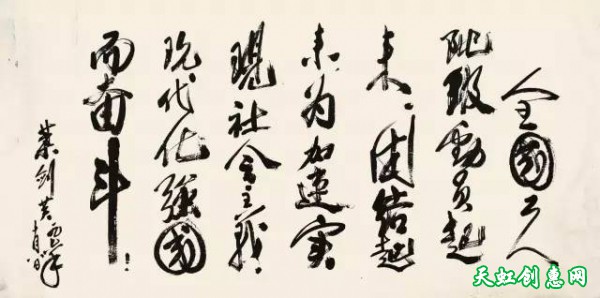 全國工人
阶级動员起
来,团结起
来,为加速实
現社会主義
现代化强國
而奮斗!
葉剑英
天虹创惠网